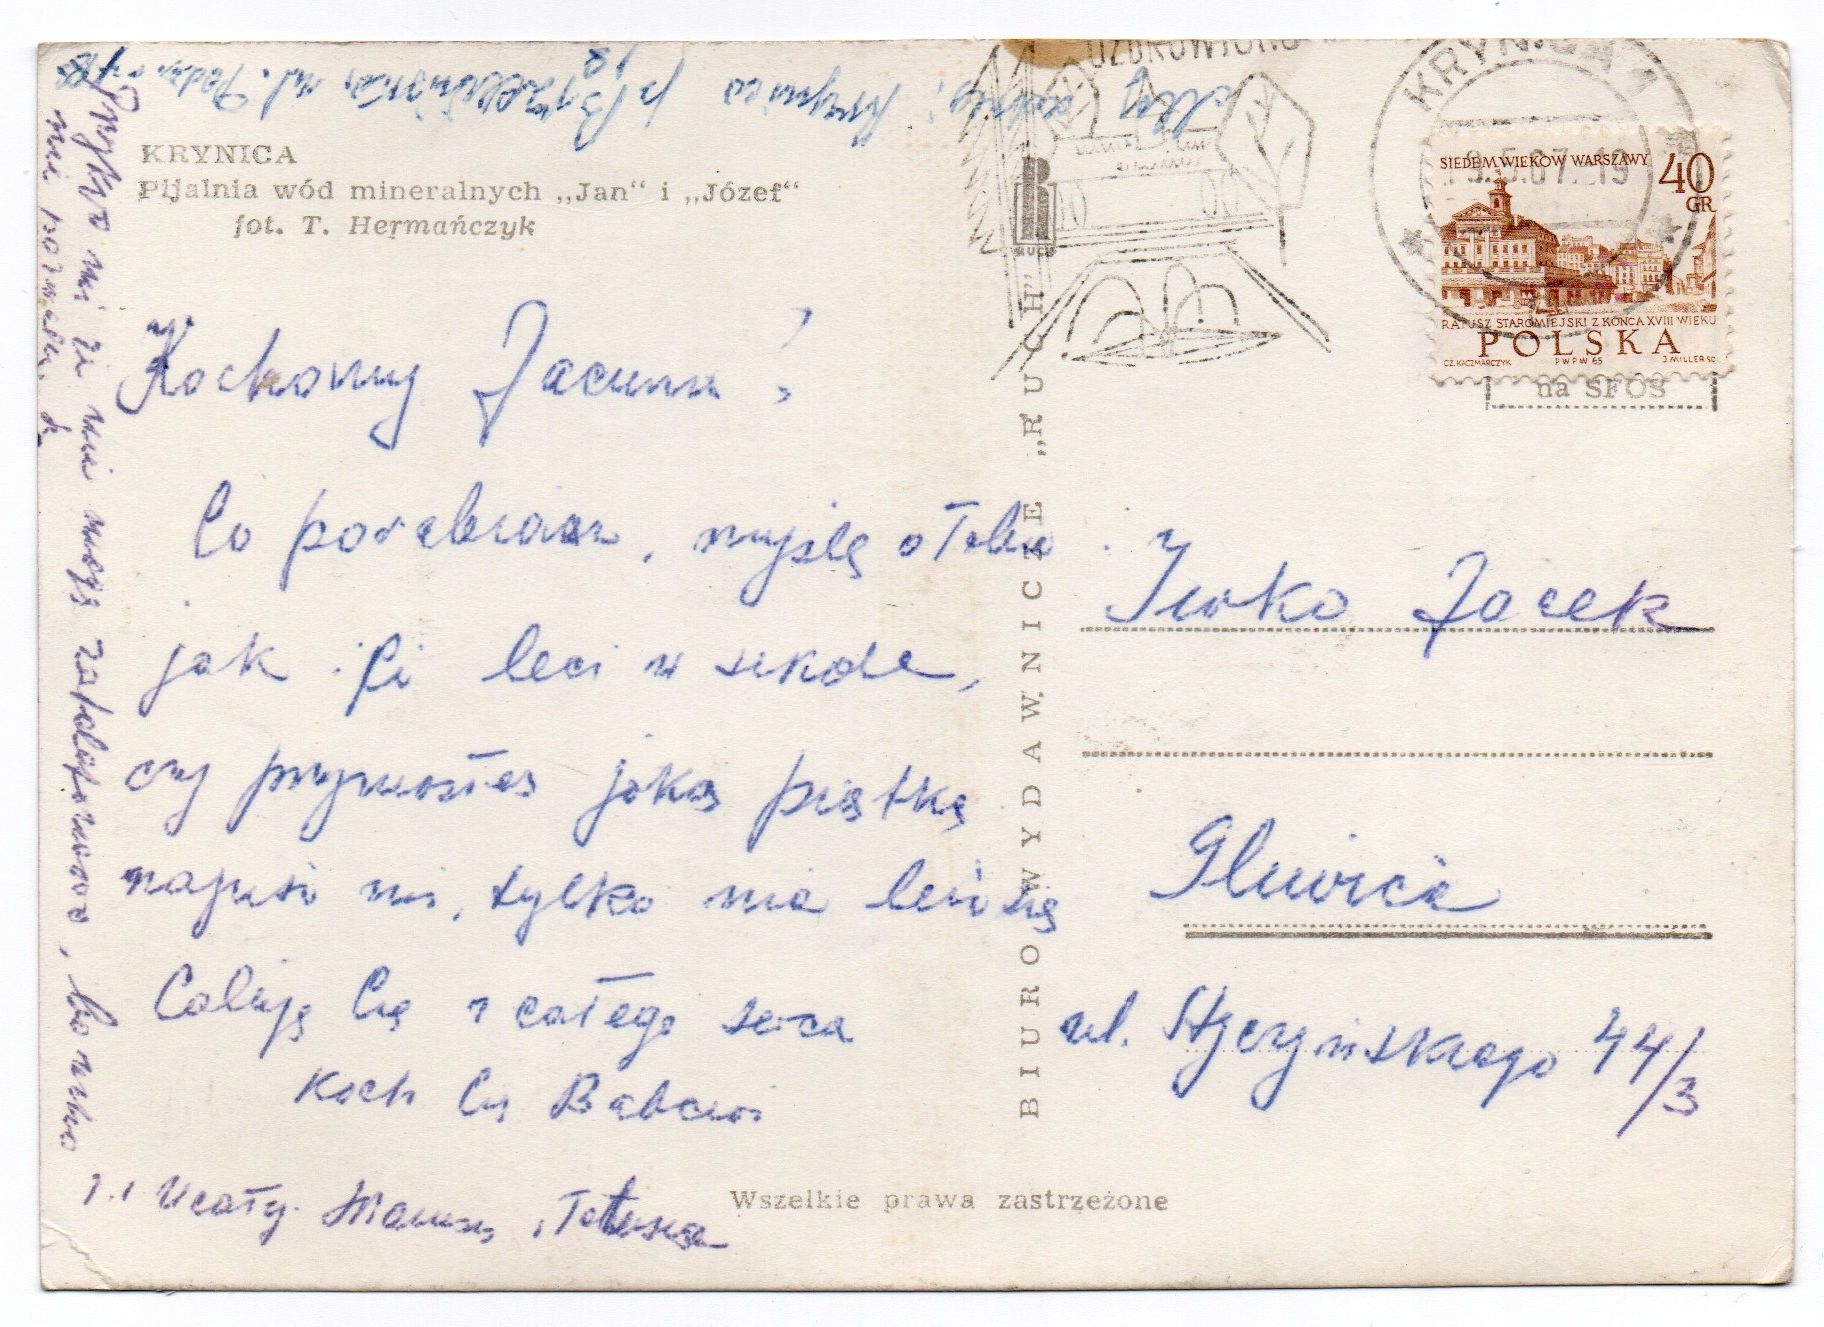 Mój adres: Krynica
p. Brzellinowa ul. 
KRYNICA
Pijalnia wód mineralnych „Jan“ i „Józef“
fot. T. Hermańczyk
Kochany Jacuniu!
Co porabiasz, myślę o Tobie
jak Ci leci w szkole,
czy przyniosłeś jakąś piątkę
napisz mi, tylko nie leń się
Całuję Cię z całego serca
Koch Cię Babcia
Ucałuj Mamusię, Tatusia
Przykro mi że nie mogę zatelefonować, bo
nie
UZDROWISKO
KRYNICA 1
9.5.67.-19
SIEDEM WIEKÓW WARSZAWY
40
GR
RATUSZ STAROMIEJSKI Z KOŃCA XVIII WIEKU
POLSKA
CZ. KACZMARCZYK PWPW 65 J. MILLER SC.
na SFOS
RUCH
BIURO WYDAWNICZE „RUCH“
Jacek
Gliwice
ul. Styczyńskiego 44/3
Wszelkie prawa zastrzeżone